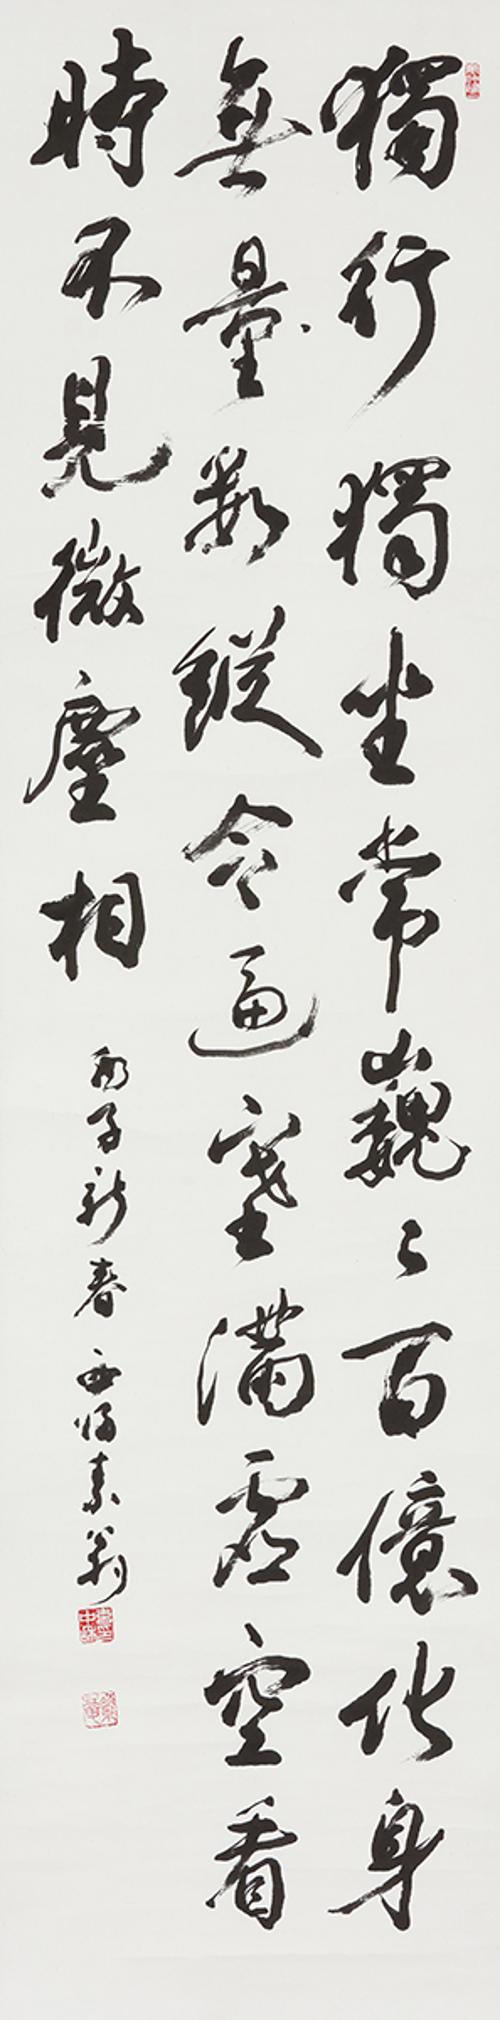 獨行獨坐常巍〻百億化身
無量數縱令逼塞滿虛空看
時不見微塵相
丙子新春 素翁